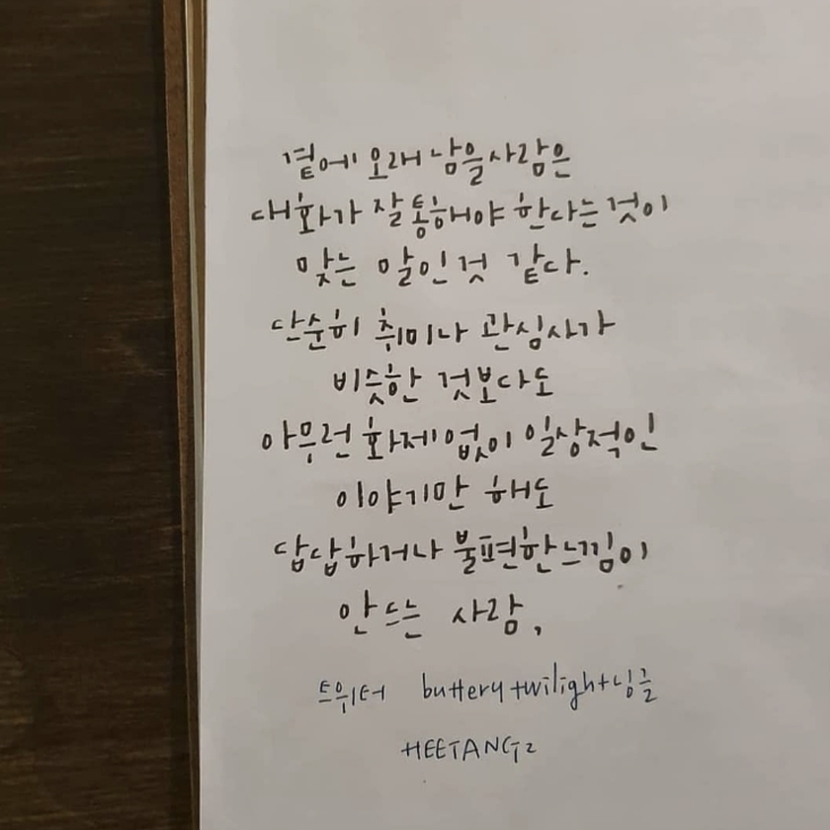 곁에 오래 남을 사람은
대화가 잘 통해야 한다는 것이
맞는 말인 것 같다.
단순히 취미나 관심사가
비슷한 것보다도
아무런 화제 없이 일상적인
이야기만 해도
답답하거나 불편한 느낌이
안 드는 사람,
트위터 buttery twilight 님글
HEETANG2